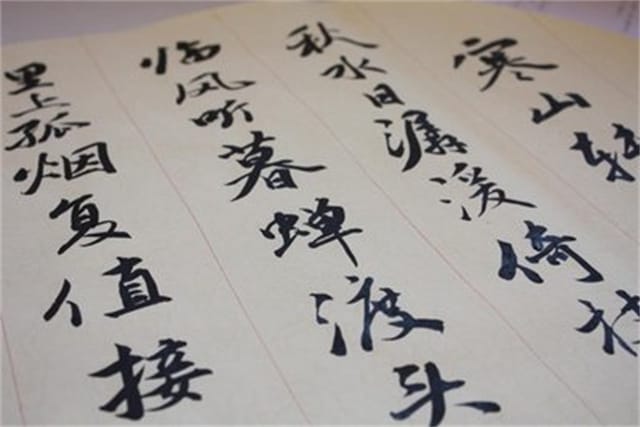 寒山转
秋水日潺湲倚杖
临风听暮蝉渡头
里上孤烟复值接